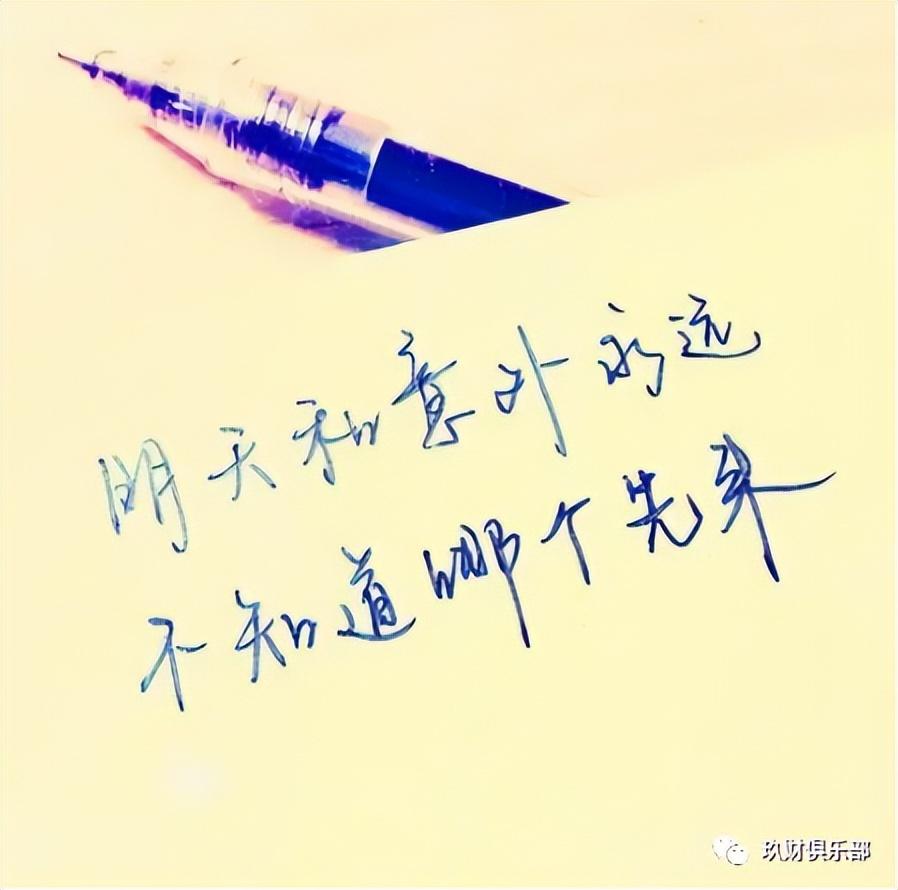 明天和意外永远
不知道哪个先来
玖财俱乐部